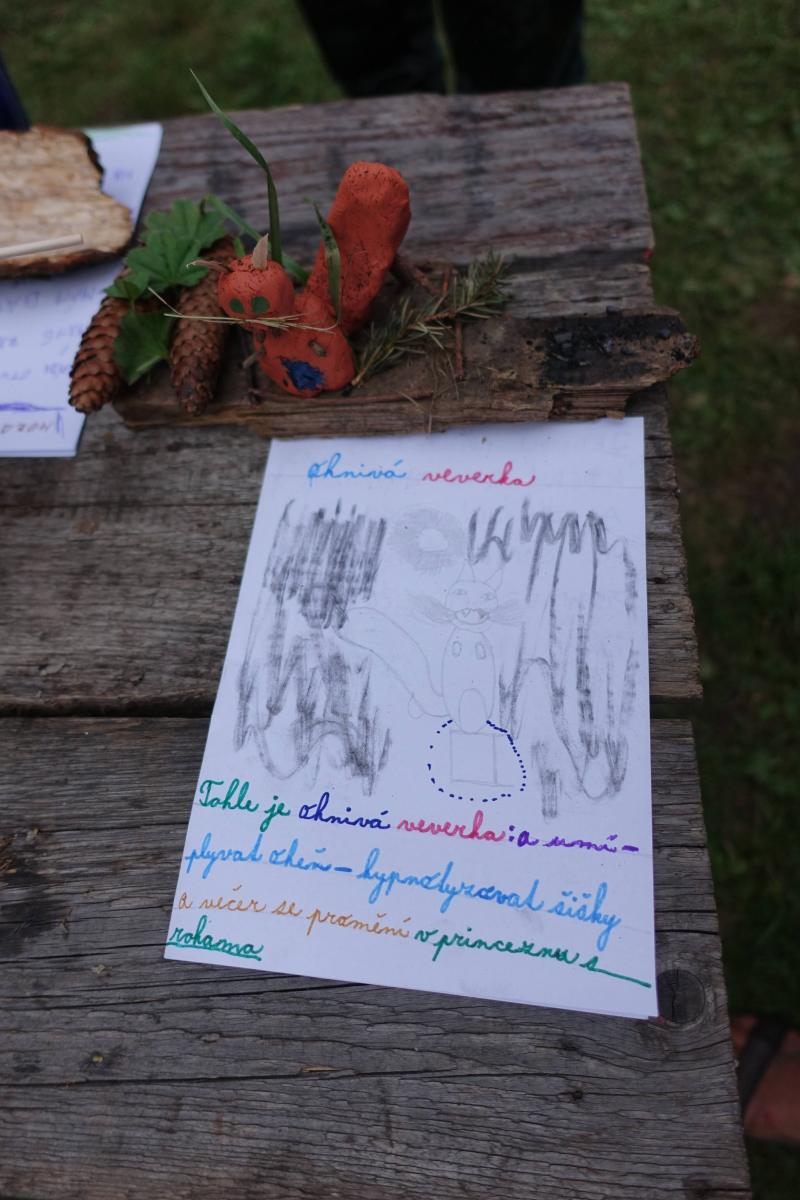 ohnivá veverka
Tohle je ohnivá veverka: a umí-
plyvat oheň - hypnotyzovat šišky
a večer se promění v princeznu s
rohama